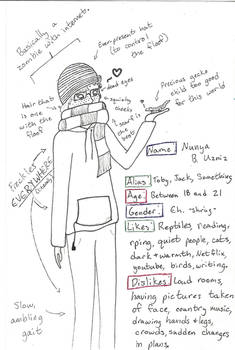 Basically a
zombie with internet.
Ever present hat
(to control
the floof)
dead eyes
Hair that
is one
with the
floof
squishy
cheeks
1 scarf is
best
Precious gecko
child too good
for this world
Freckles
EVERYWHERE
Slow,
ambling
gait
Name: Nunya
B. Uzniz
Alias: Toby, Jack, Something
Age: Between 18 and 21
Gender: Eh. *shrug*
Likes: Reptiles, reading,
rping, quiet people, cats,
dark + warmth, Netflix,
youtube, birds, writing.
Dislikes: Loud rooms,
having pictures taken
of face, country music,
drawing hands + legs,
crowds, sudden changes
in plans.